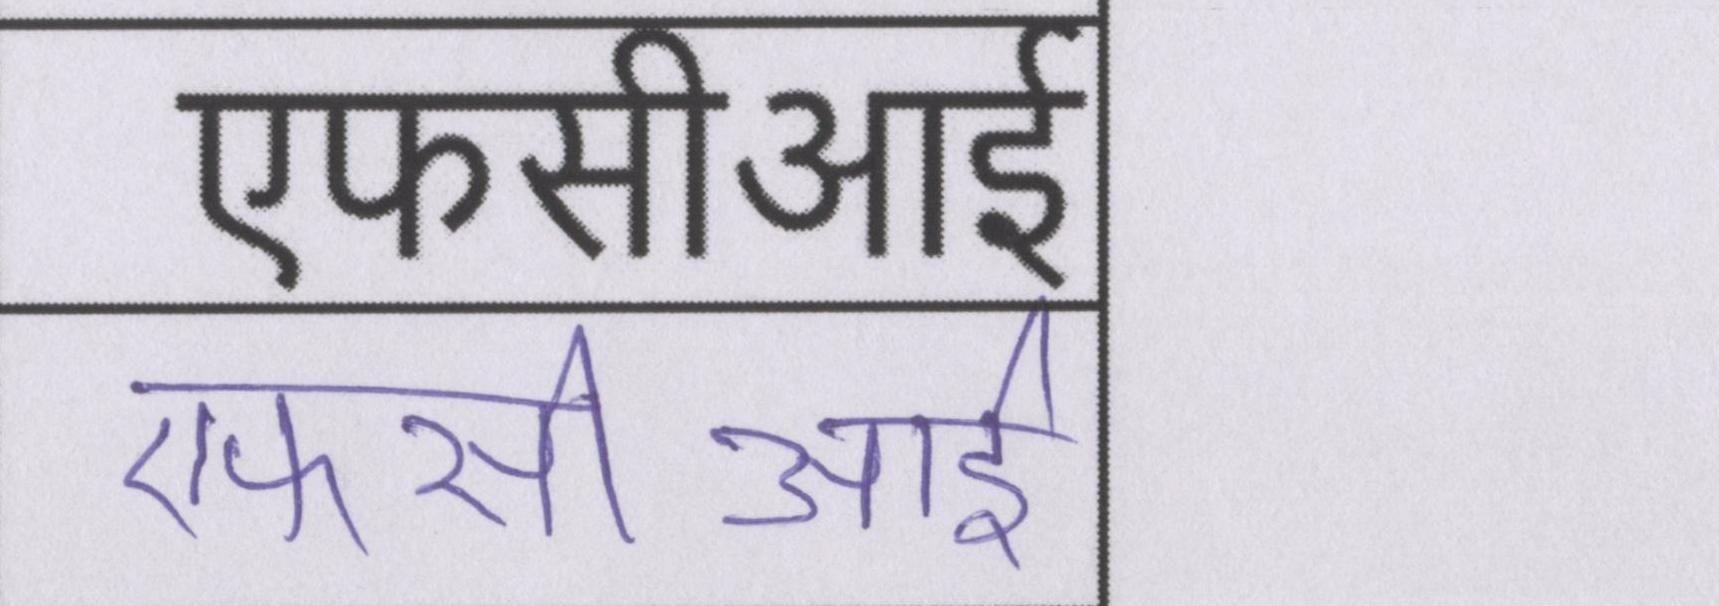 एफसीआई
एफसी आई